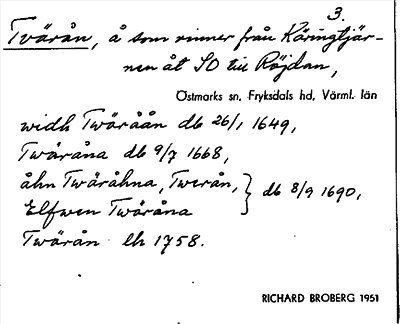 3.
Tvärån, å som rinner från Käringtjär-
nen åt SO till Röjdan,
Östmarks sn, Fryksdals hd, Värml. län
widh Twäråån db 26/1 1649,
Twäråna db 9/7 1668,
åhn Twäråhna, Twerån, } db 8/9 1690,
Elfwen Twäråna
Twärån lh 1758.
RICHARD BROBERG 1951